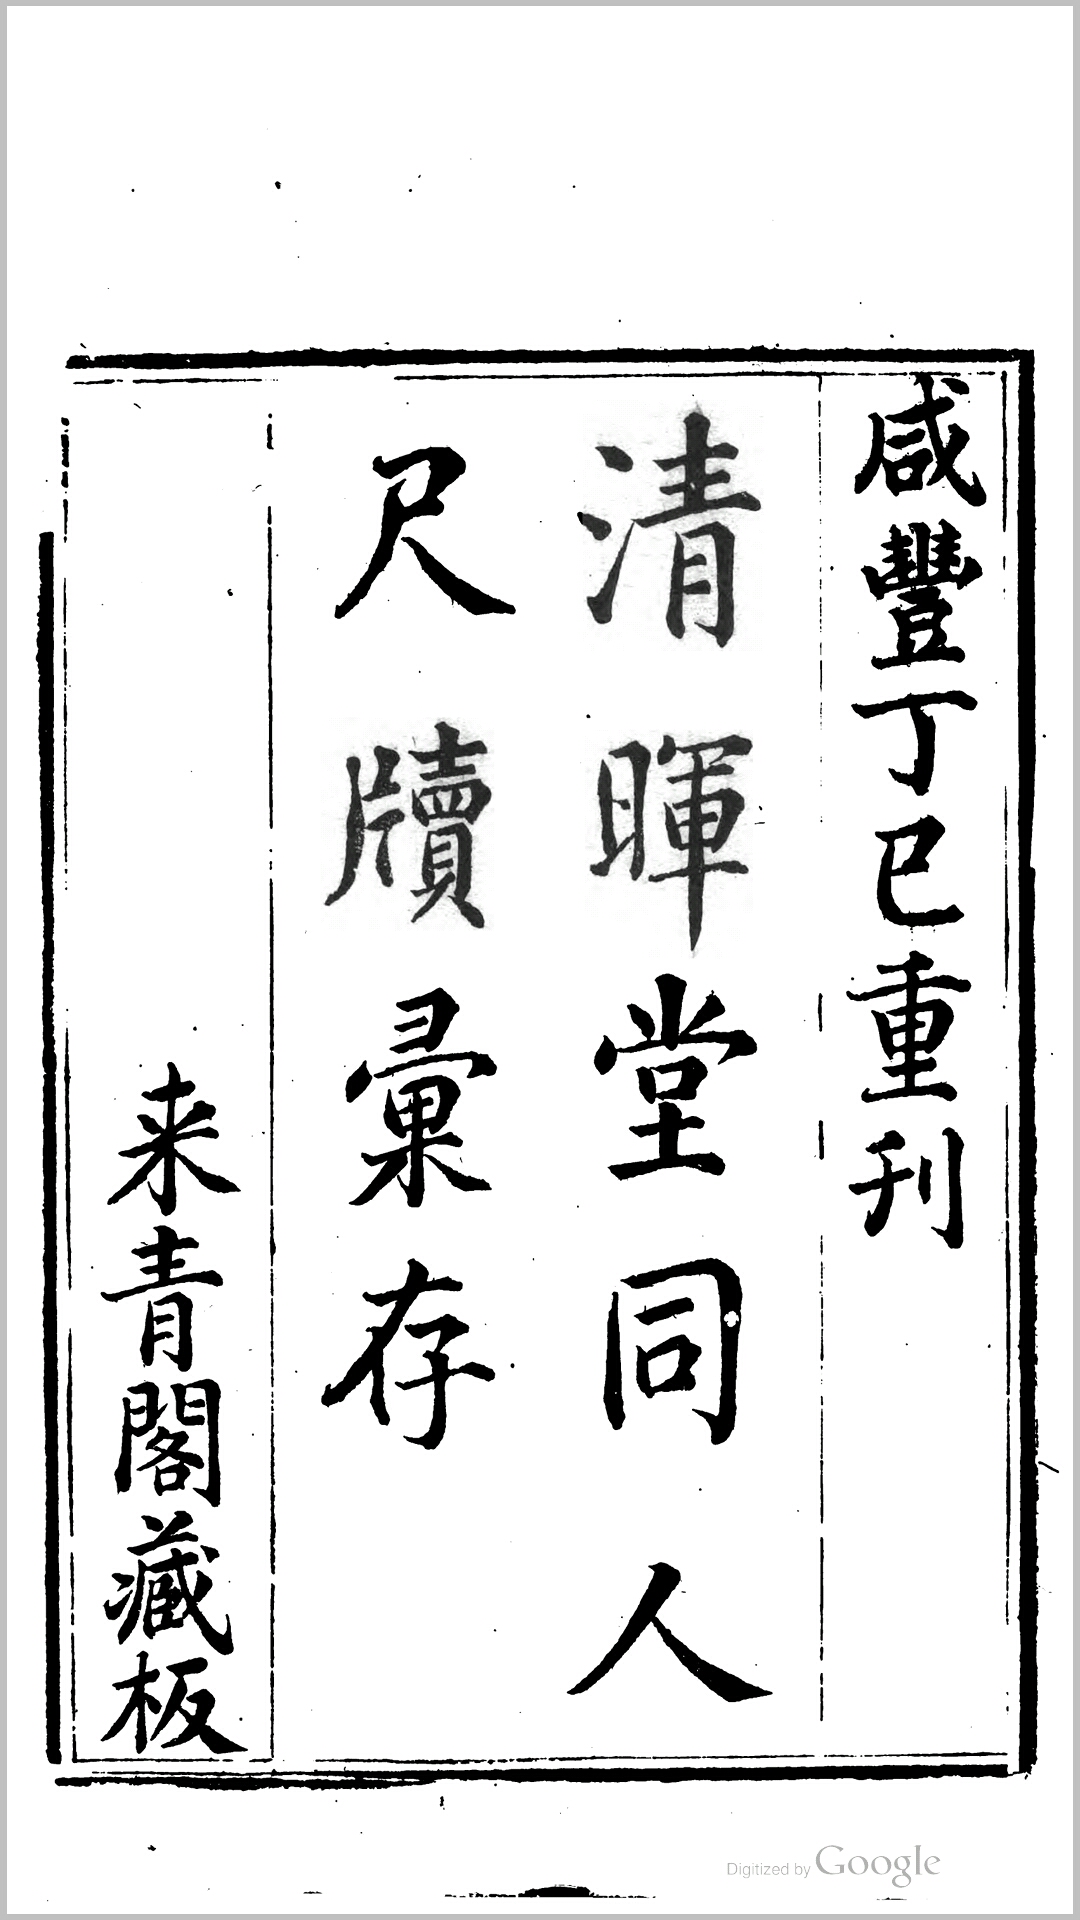 咸豐丁巳重刊
清暉堂同人
尺牘彙存
来青閣藏板
Digitized by Google